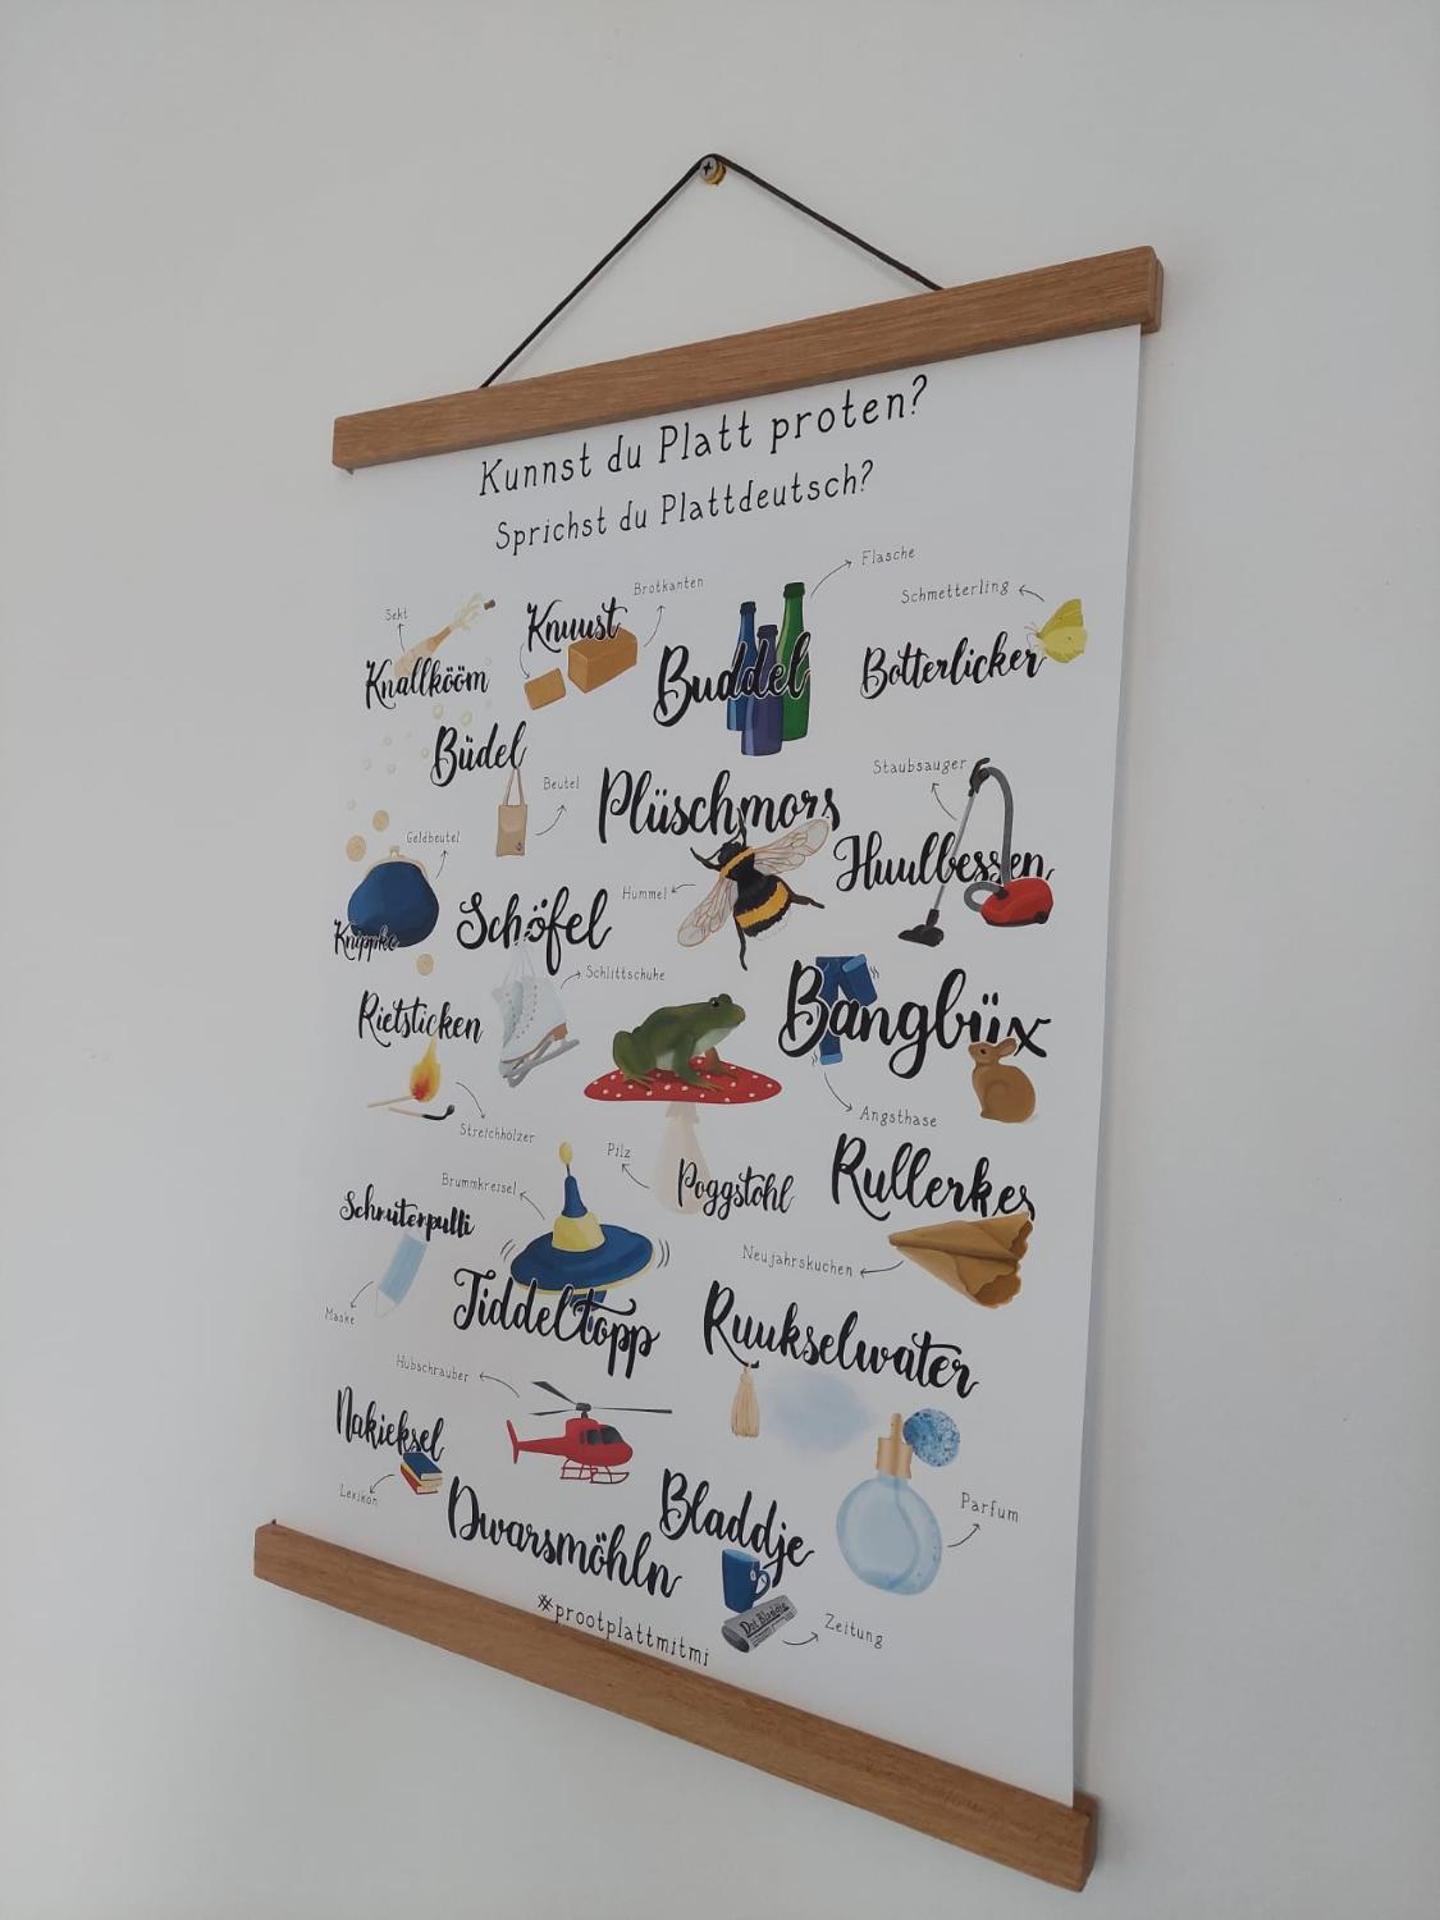 Kunnst du Platt proten?
Sprichst du Plattdeutsch?
Sekt
Knallkööm
Brotkanten
Knuust
Flasche
Buddel
Schmetterling
Botterlicker
Büdel
Beutel
Plüschmors
Hummel
Staubsauger
Huulbessen
Geldbeutel
Knippke
Schöfel
Schlittschuhe
Rietsticken
Streichhölzer
Bangbüx
Angsthase
Pilz
Poggstohl
Rullerkes
Neujahrskuchen
Schnutenpulli
Maske
Brummkreisel
Tiddeltopp
Ruukselwater
Parfum
Hubschrauber
Dwarsmöhln
Nakieksel
Lexikon
Bladdje
Dat Bladdje
Zeitung
#prootplattmitmi